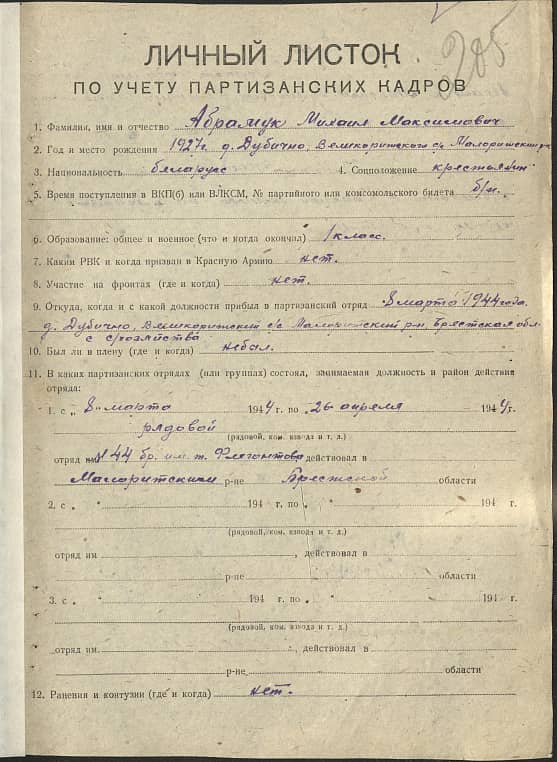 205
ЛИЧНЫЙ ЛИСТОК
ПО УЧЕТУ ПАРТИЗАНСКИХ КАДРОВ
1. Фамилия, имя и отчество Абрамук Михаил Максимович
2. Год и место рождения 1927г. д. Дубично, Великоритского с/с Малоритский р-н
3. Национальность беларусс 4. Соцположение крестьянин
5. Время поступления в ВКП(б) или ВЛКСМ, № партийного или комсомольского билета б/п.
6. Образование: общее и военное (что и когда окончил) 1 класс.
7. Каким РВК и когда призван в Красную Армию нет.
8. Участие на фронтах (где и когда) нет.
9. Откуда, когда и с какой должности прибыл в партизанский отряд 8 марта 1944 года.
д. Дубично, Великоритский с/с Малоритский р-н Брестская обл.
с с/хозяйства
10. Был ли в плену (где и когда) небыл.
11. В каких партизанских отрядах (или группах) состоял, занимаемая должность и район действия
отряда:
1. с „ 8 " марта 1944 г. по „ 26 апреля 1944 г.
рядовой
(рядовой, ком. взвода и т. д.)
отряд им 44 бр. им. т. Флегонтова действовал в
Малоритском р-не Брестской области
2. с „ " 194 г. по „ " 194 г.
(рядовой, ком. взвода и т. д.)
отряд им , действовал в
р-не области
3. с „ " 194 г. по „ " 194 г.
(рядовой, ком. взвода и т. д.)
отряд им. , действовал в
р-не области
12. Ранения и контузии (где и когда) нет.